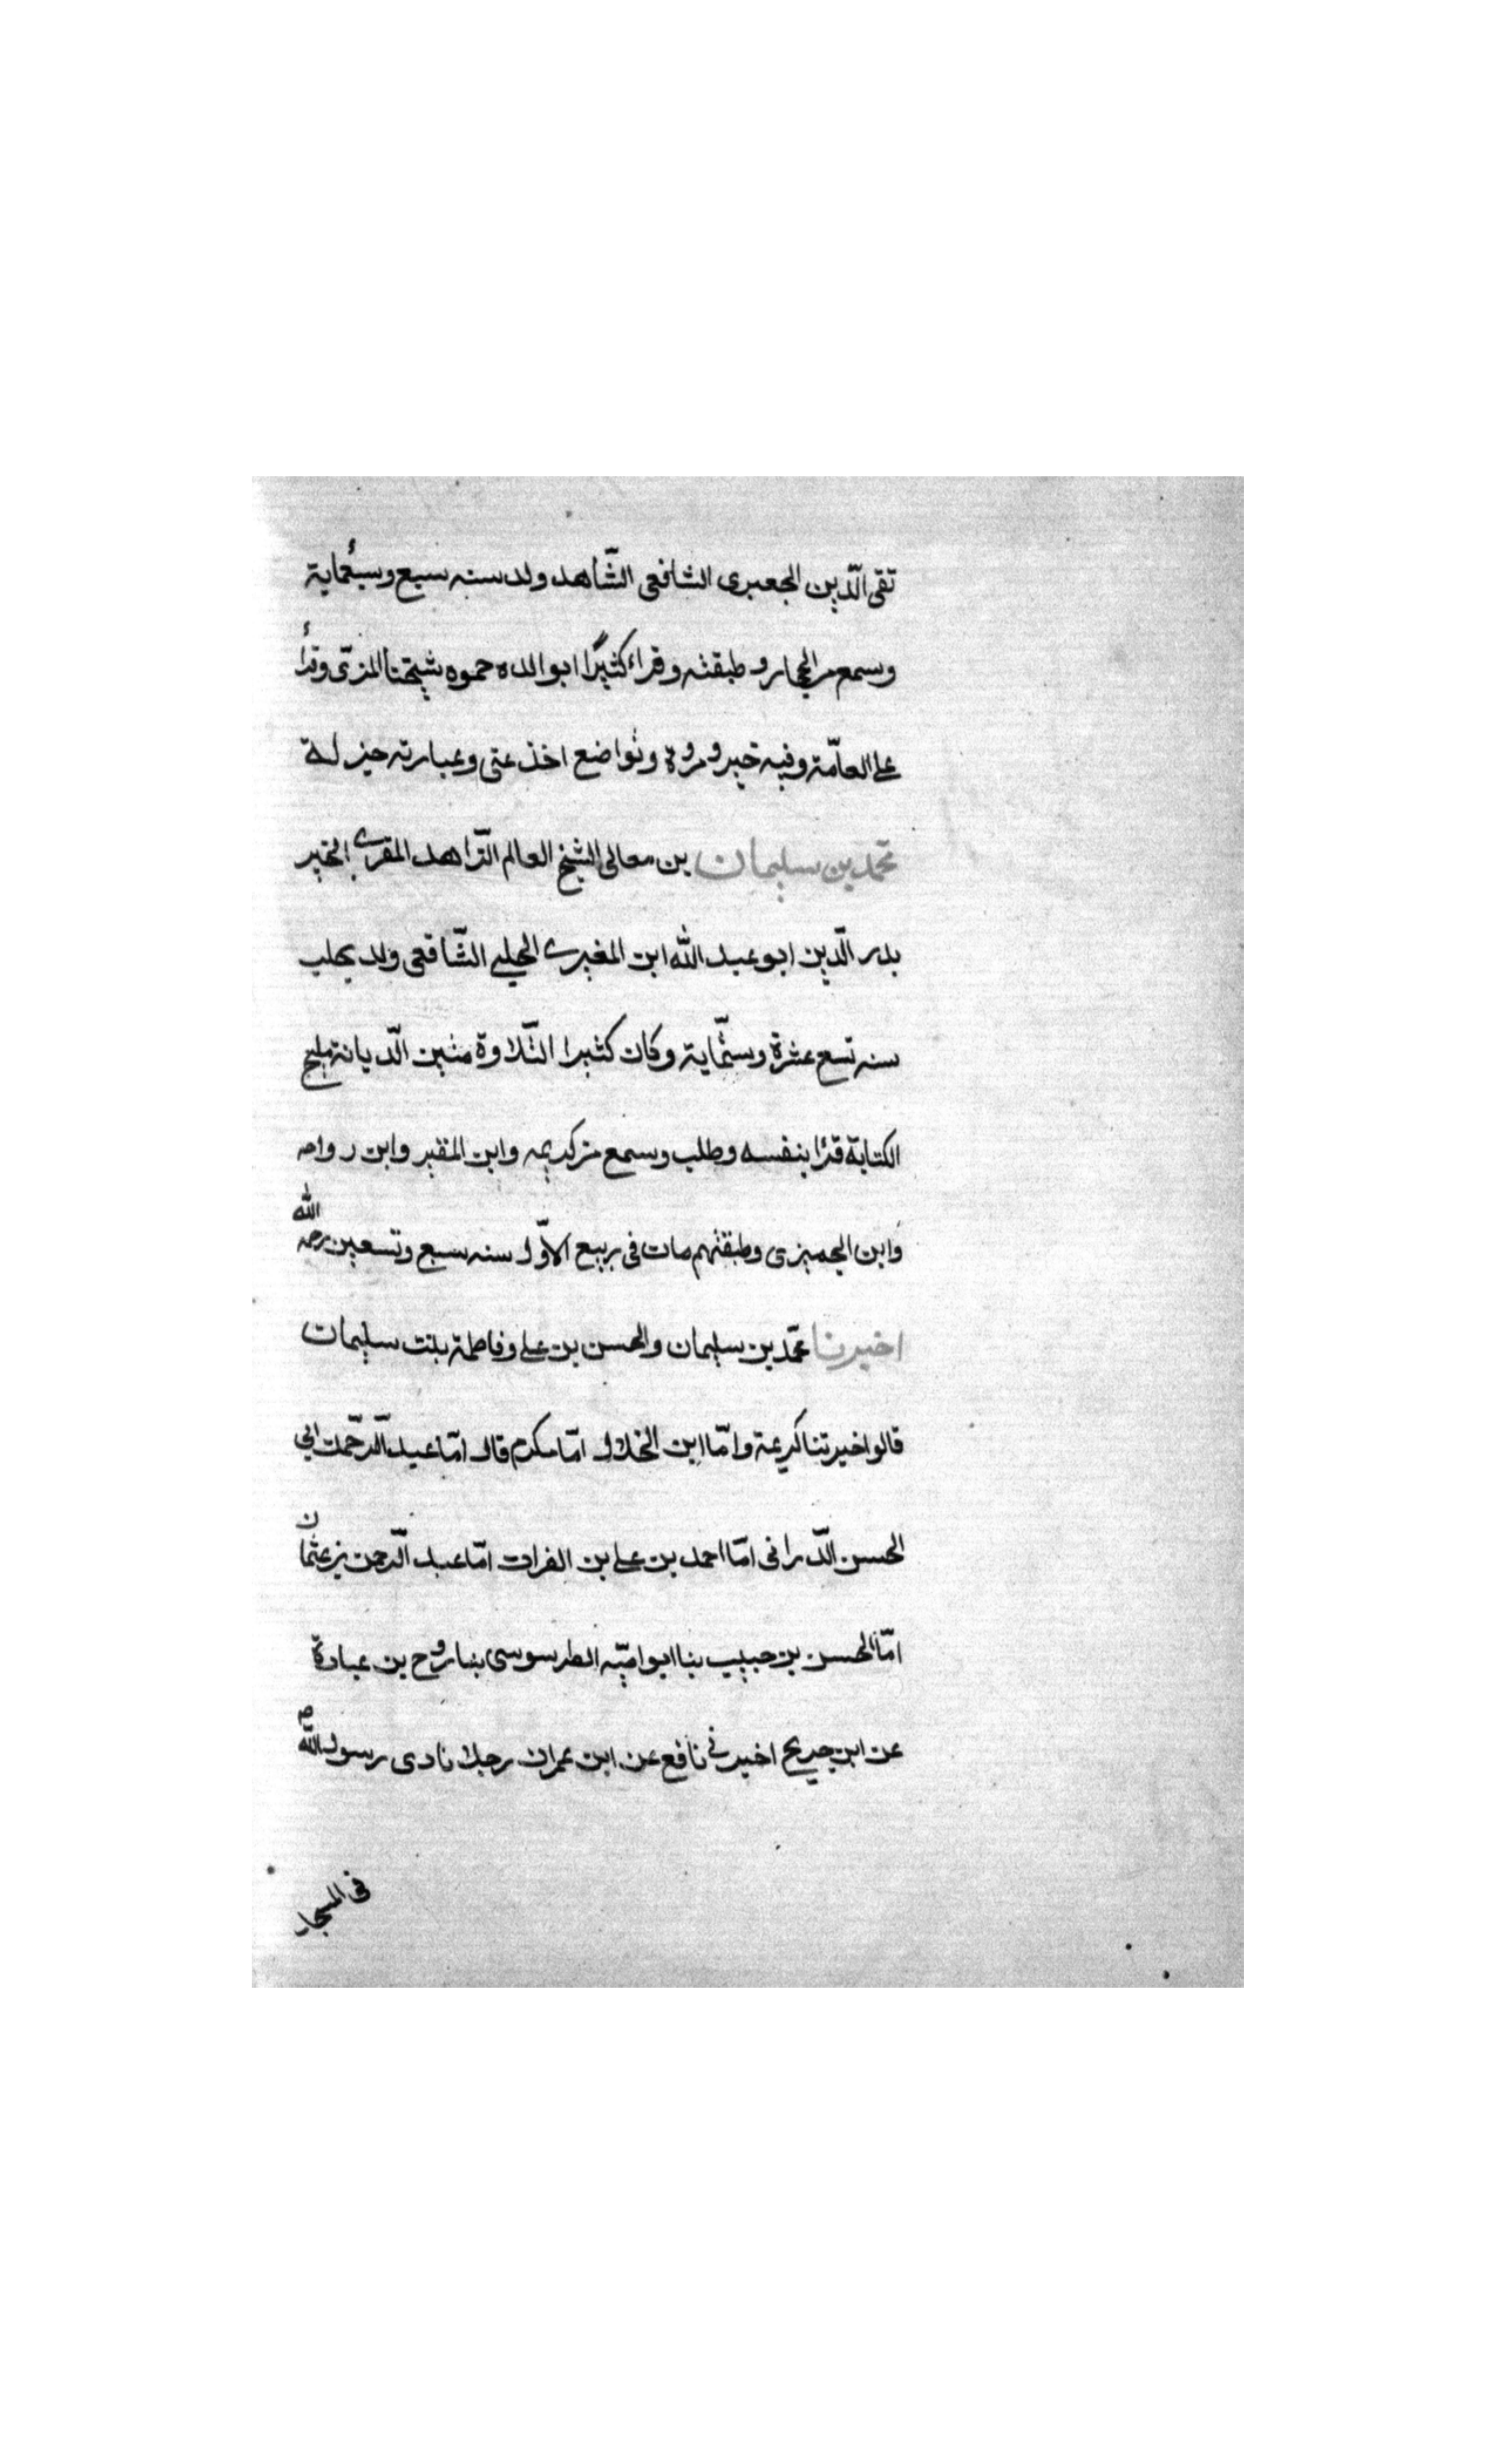 تقى الدّين الجعبرى الشافعى الشّاهد ولد سنه سبع وسبعُماية
وسمع من الحجار و طبقته وقراء كثيرًا ابو الده حموه شيخنا المزّى وقرأ
على العامّة وفيه خير و مروة وتواضع اخذ عنى وعبارته جيز لـة
محمّد بن سليمان بن معالى الشيخ العالم الزّاهد المقرى الخير
بدر الدّين ابو عبد الله ابن المغبرى الحلبى الشّافعى ولد بحلب
سنه تسع عشرة وستّماية وكان كثيرا التّلاوة متين الدّيانة مليح
الكتابة قرأ بنفسه وطلب وسمع من كريمه وابن المقير وابن رواحه
وابن الجميزى وطبقتهم مات فى ربيع الاوّل سنه سبع وتسعين رحمه الله
اخبرنا محمّد بن سليمان والحسن بن على وفاطمة بنت سليمان
قالوا اخبرتنا كريمة وامّا ابن الخلال امّا مكرم قال امّا عبد الرّحمن ابى
الحسن الدّرانى امّا احمد بن على بن الفرات امّا عبد الرّحمن بن عثمان
امّا الحسن بن حبيب بنا ابو اميّه الطرسوسى بنا روح بن عبادة
عن ابن جريج اخبرنى نافع عن ابن عمران رجلا نادى رسول الله ص
فى المسجد